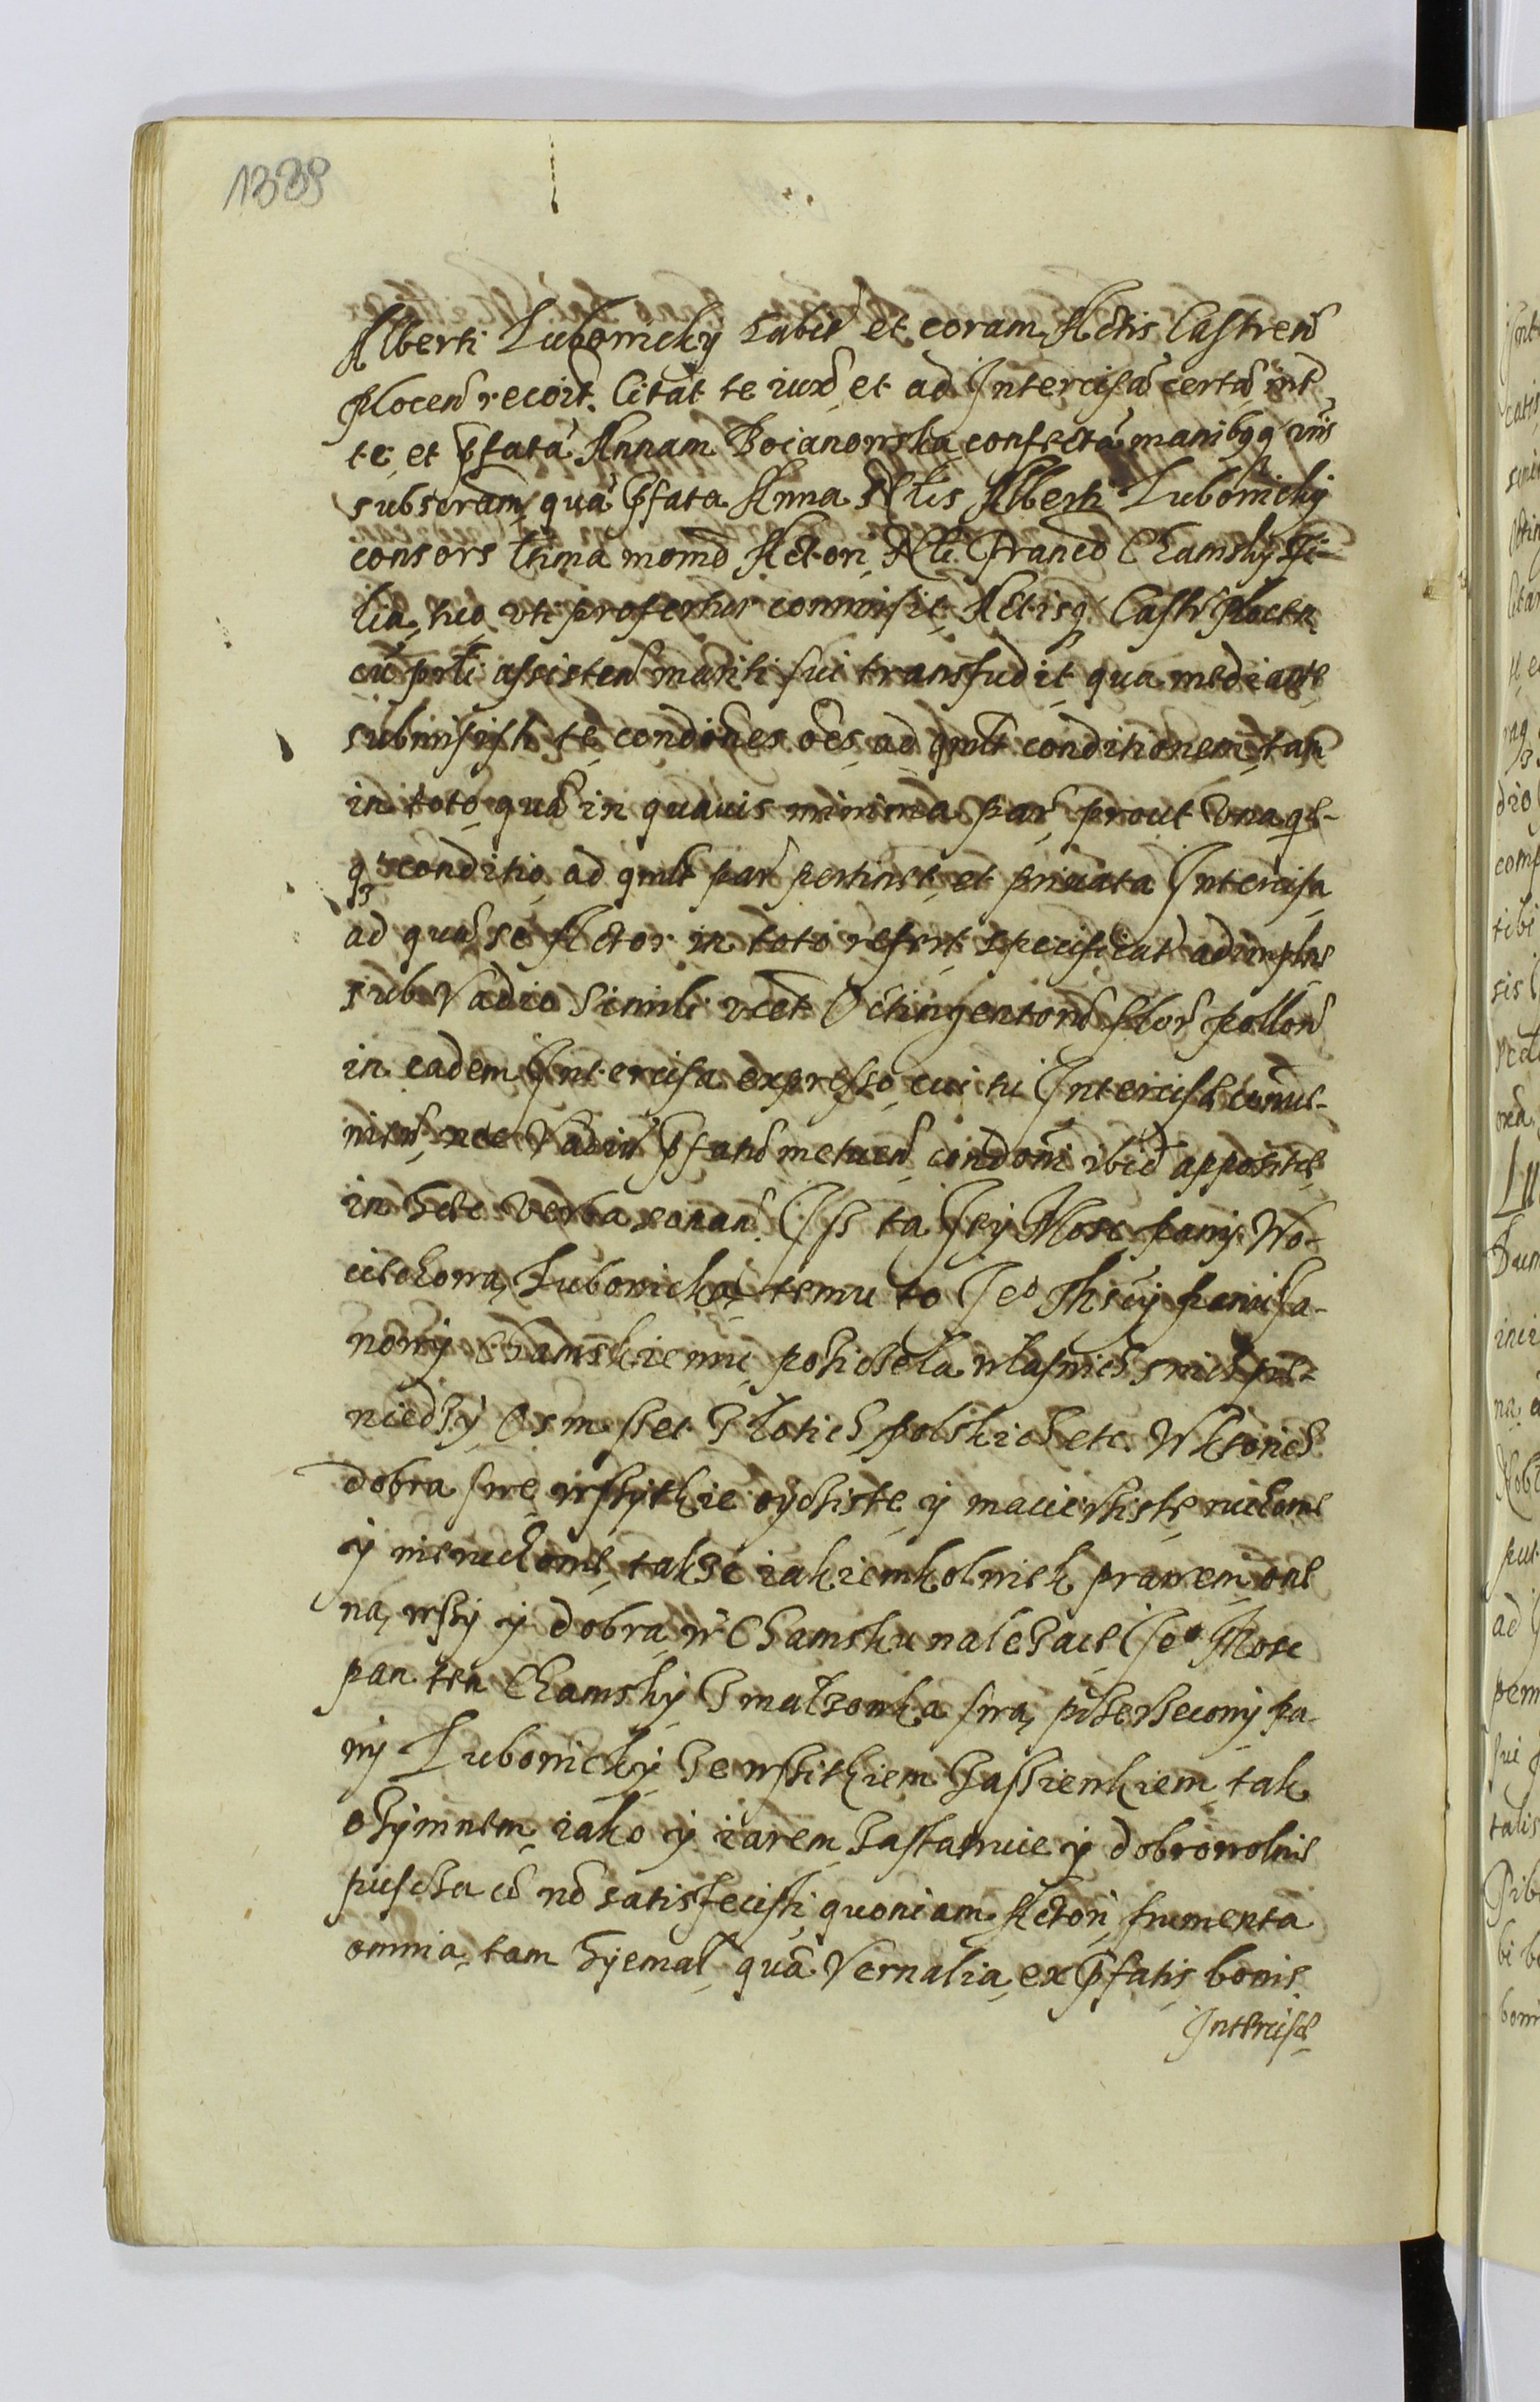 1339
Alberti Lubowicky habit et coram Actis Castren
plocen recoit. Citat te iuxa et ad Intercisa certa int
te et pfata Annam Boianowska confecta manibq vris
subscram, qua pfata Anna Nlis Alberti Lubowicky
consors ltima Actori Nli Franco Chamsky fi-
lia, tuo vti profertur commisit, Actisq Castr plocen
cu prli assisten mariti sui transfudit, qua mediante
submisisti te condiones oes ad conditionem, tam
in toto qua in quauis minima par prout vna qe-
q conditio ad par pertinet, et priuata Intercisa
ad qua se Actor in toto refert specificat adimplre
sub Vadio Simili vcet Octingentoru flor pollon
in eadem Intercisa expresso, cui tu Intercisæ
nec Vadiu pfatu metuen condoni ibid appositæ
in hæc verba sonan. Isz ta Jey Mosc pany Wo-
ciechowa, Lubowicka temu to Jeo Msci panu Ja-
nowy Chamskiemu poziczela wlasnich swich pie-
niedzy Osm sset Zlotich polskich etc. W ktorich
dobra swe wszytkie oycziste, y macierziste ruchome
y nieruchome, takze iakiemkolwiek prawem one
na, wszy y dobra w Chamsku nalezace Jeo Mosc
pan ten Chamsky Z malzonka swa, pa-
ny Lubowicky Ze wszitkiem Zassiewkiem, tak
Ozymnem, iako y iarem Zastawuie y dobrowolnie
puscza co no satisfecisti quoniam Actori frumenta
omnia tam hyemal qua Vernalia, ex pfatis bonis
Intercisæ